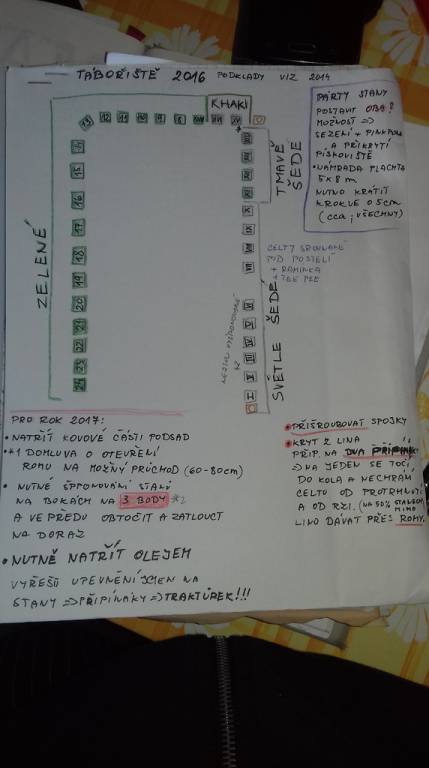 TÁBOŘIŠTĚ 2016 PODKLADY VIZ 2014
KHAKI
13 12 11 10 9 8
ZELENÉ
15
16
17
18
19
20
21
22
23
24
TMAVĚ ŠEDÉ
SVĚTLE ŠEDÉ
PÁRTY STANY
POSTAVIT OBA?
MOŽNOST ⇒
SEZENÍ + PINKPONG
A PŘIKRYTÍ
PÍSKOVIŠTĚ
• NÁHRADA PLACHTA
5x8 m
NUTNO KRÁTIT
KROKVE O 5cm
(CCA, VŠECHNY)
CELTY SROVNANÉ
POD POSTELÍ
+ RAMÍNKA
PRO ROK 2017:
• NATŘÍT KOVOVÉ ČÁSTI PODSAD
• *1 DOMLUVA O OTEVŘENÍ
ROHU NA MOŽNÝ PRŮCHOD (60-80cm)
• NUTNÉ ŠPRONOVÁNÍ STANŮ
NA BOKÁCH NA 3 BODY *2
A VEPŘEDU OBTOČIT A ZATLOUCT
NA DORAZ
• NUTNĚ NATŘÍT OLEJEM
VYŘEŠIT UPEVNĚNÍ JMEN NA
STANY ⇒ PŘIPÍNÁKY ⇒ TRAKTŮREK!!!
• PŘIŠROUBOVAT SPOJKY
• KRYT Z LINA
PŘIP. NA DVA PŘIPÍNÁK
⇒ NA JEDEN SE TOČÍ
DO KOLA A NECHRÁNÍ
CELTU OD PROTRHNUTÍ
A OD RZI. (NA 50% STANECH)
LINO DÁVAT PŘES ROHY.